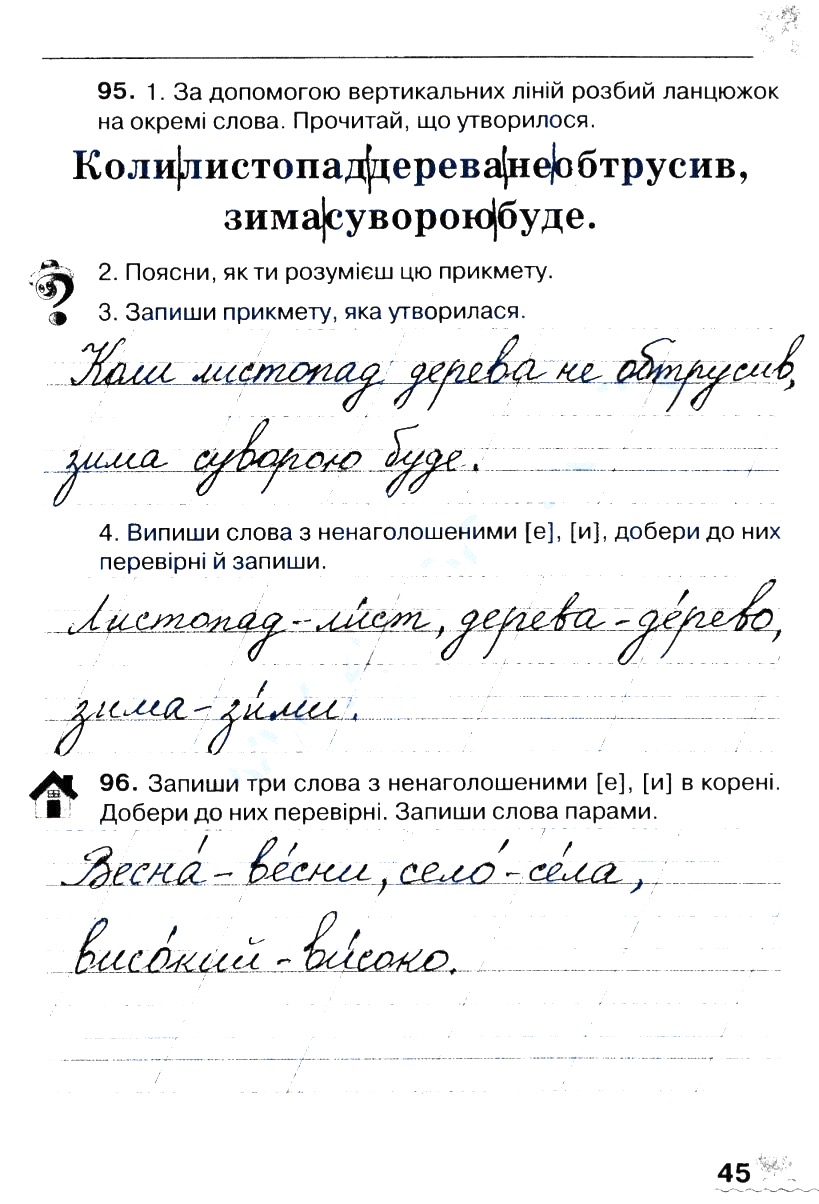 95. 1. За допомогою вертикальних ліній розбий ланцюжок
на окремі слова. Прочитай, що утворилося.
Коли|листопад|дерева|не|обтрусив,
зима|суворою|буде.
2. Поясни, як ти розумієш цю прикмету.
3. Запиши прикмету, яка утворилася.
Коли листопад дерева не обтрусив,
зима суворою буде.
4. Випиши слова з ненаголошеними [е], [и], добери до них
перевірні й запиши.
Листопад – ли́ст, дерева – де́рево,
зима – зи́ми.
96. Запиши три слова з ненаголошеними [е], [и] в корені.
Добери до них перевірні. Запиши слова парами.
Весна́ – ве́сни, село́ – се́ла,
висо́кий – ви́соко.
45